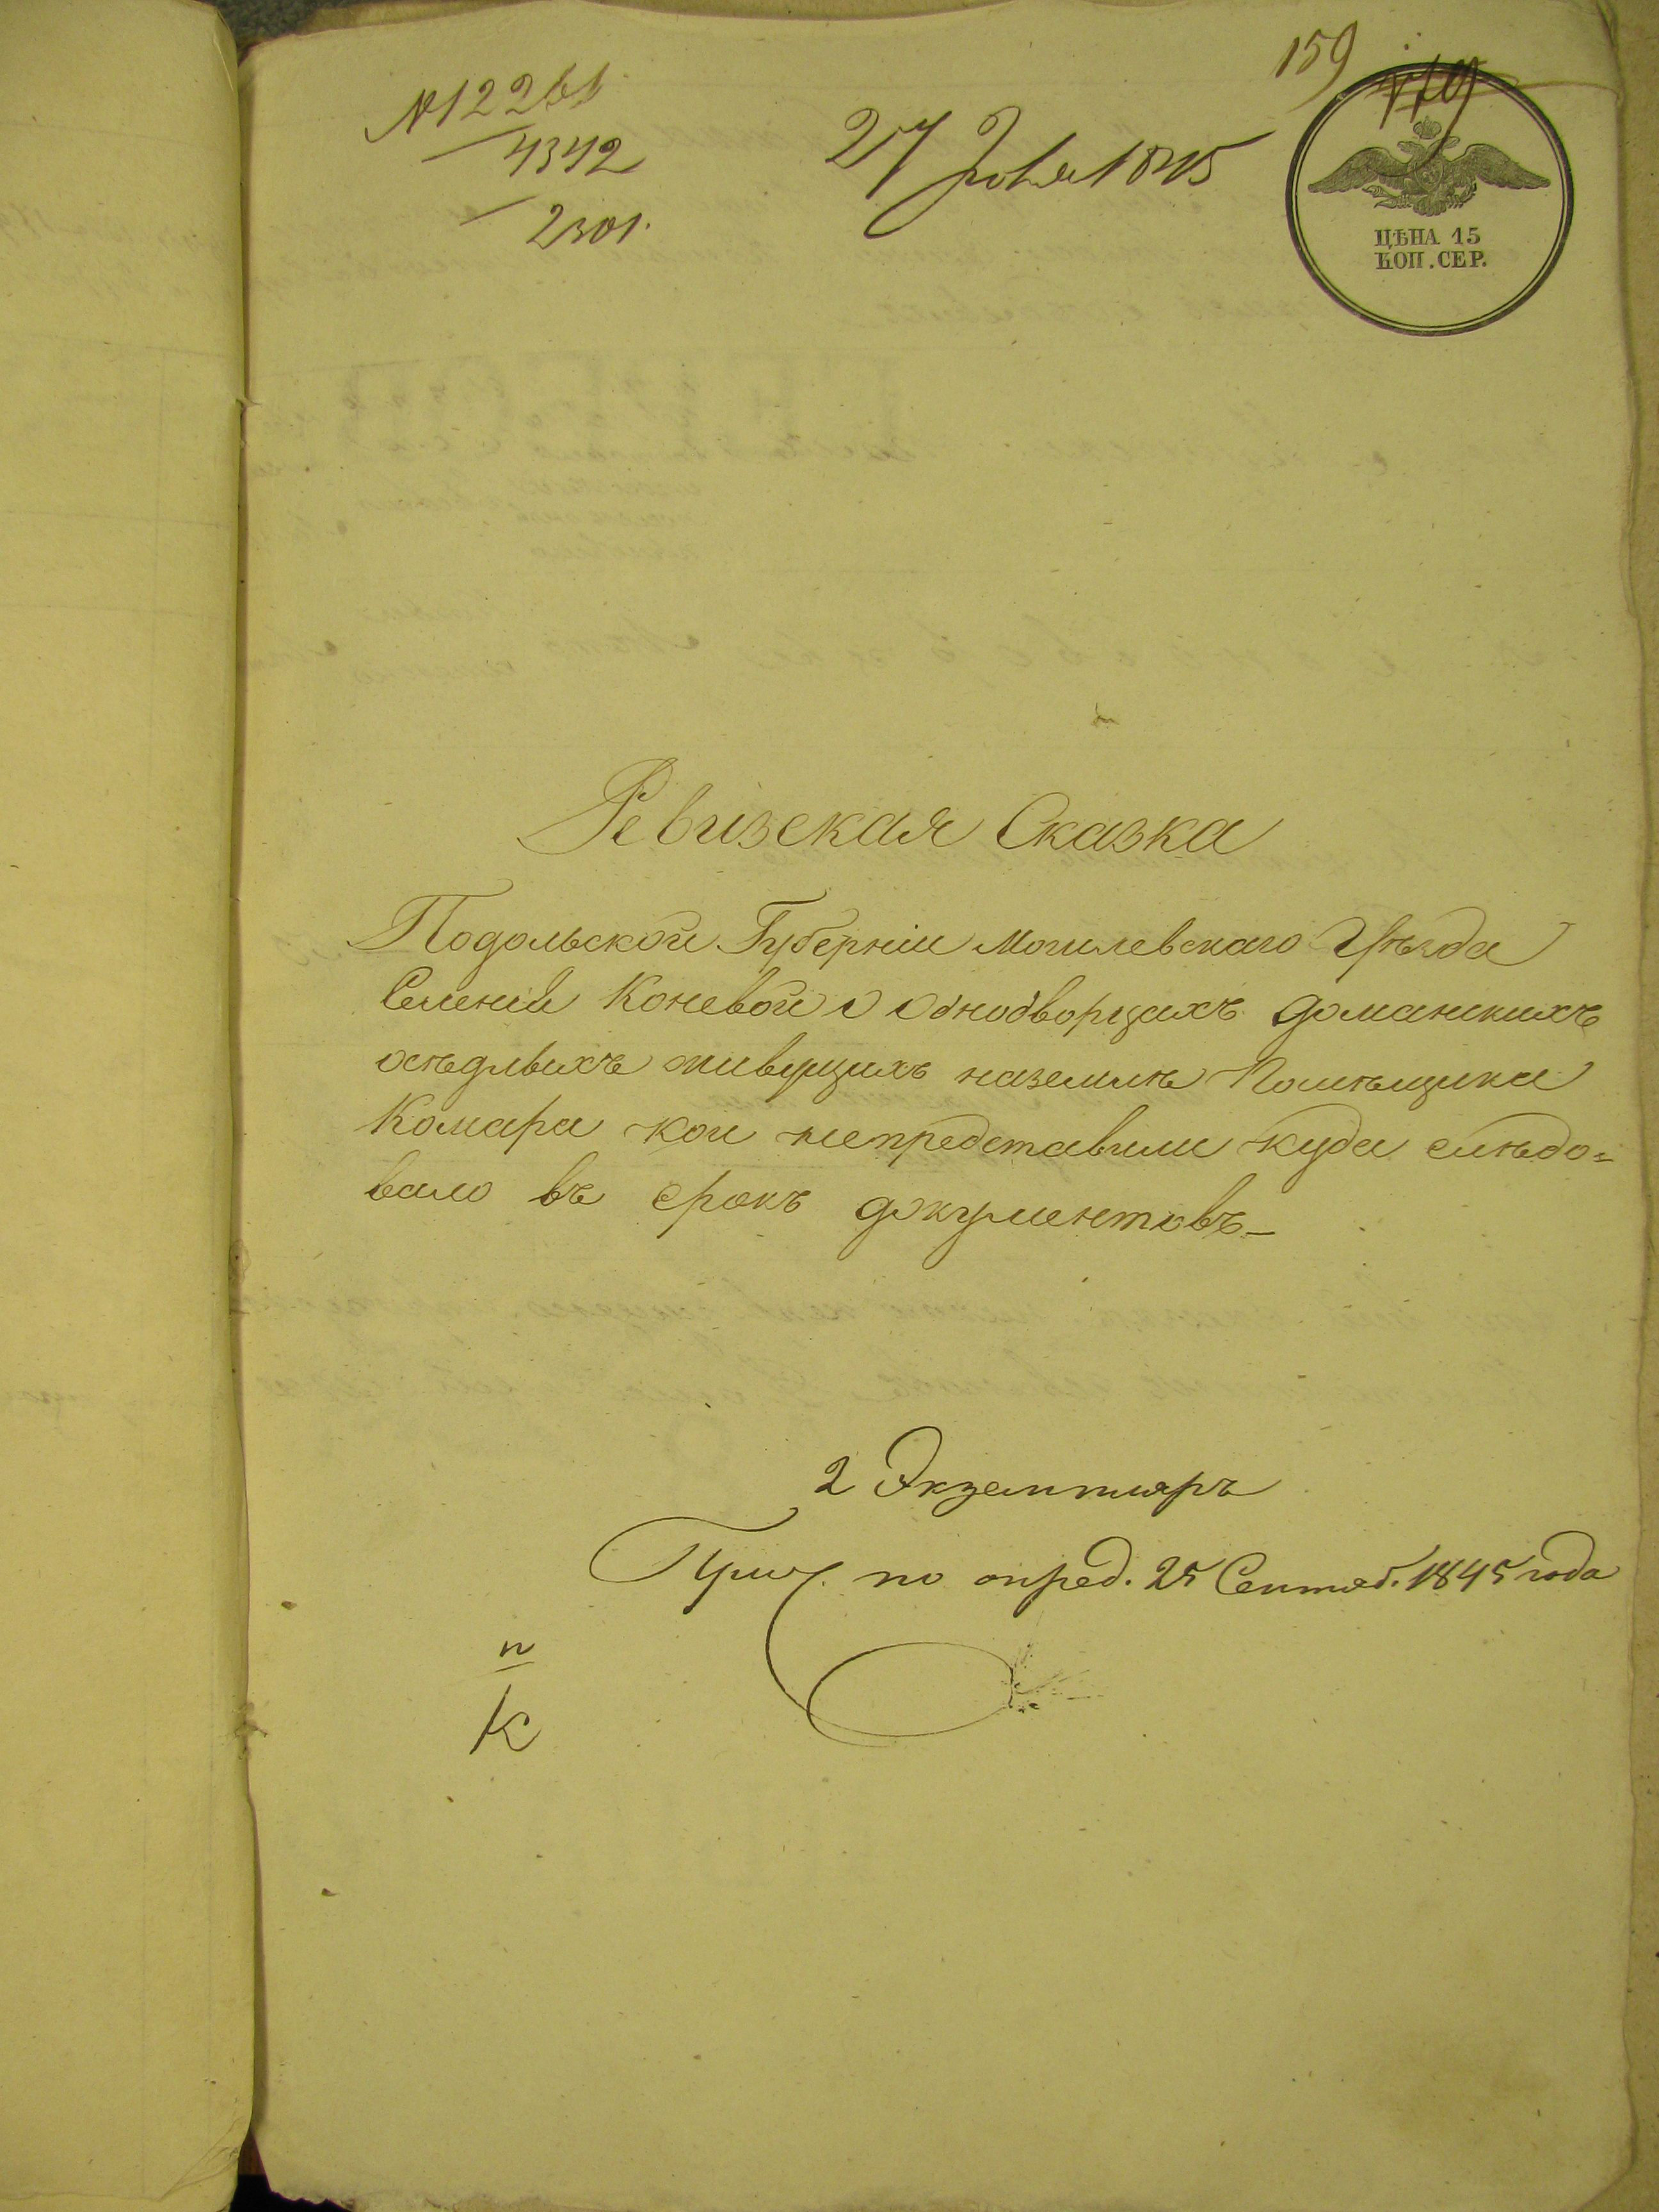 159
№ 12261
4342
2301.
27 Июня 1845
ЦѢНА 15
КОП. СЕР.
Ревизская Сказка
Подольской Губерніи Могилевскаго Уѣзда
Селенія Коневой о Однодворцахъ Доманскихъ
осѣдлыхъ живущихъ наземлѣ Помѣщика
Комара кои непредставили куда слѣдо=
вало въ срокъ документовъ
2 Экземпляръ
по опред. 25 Сентяб. 1845 года
п
К